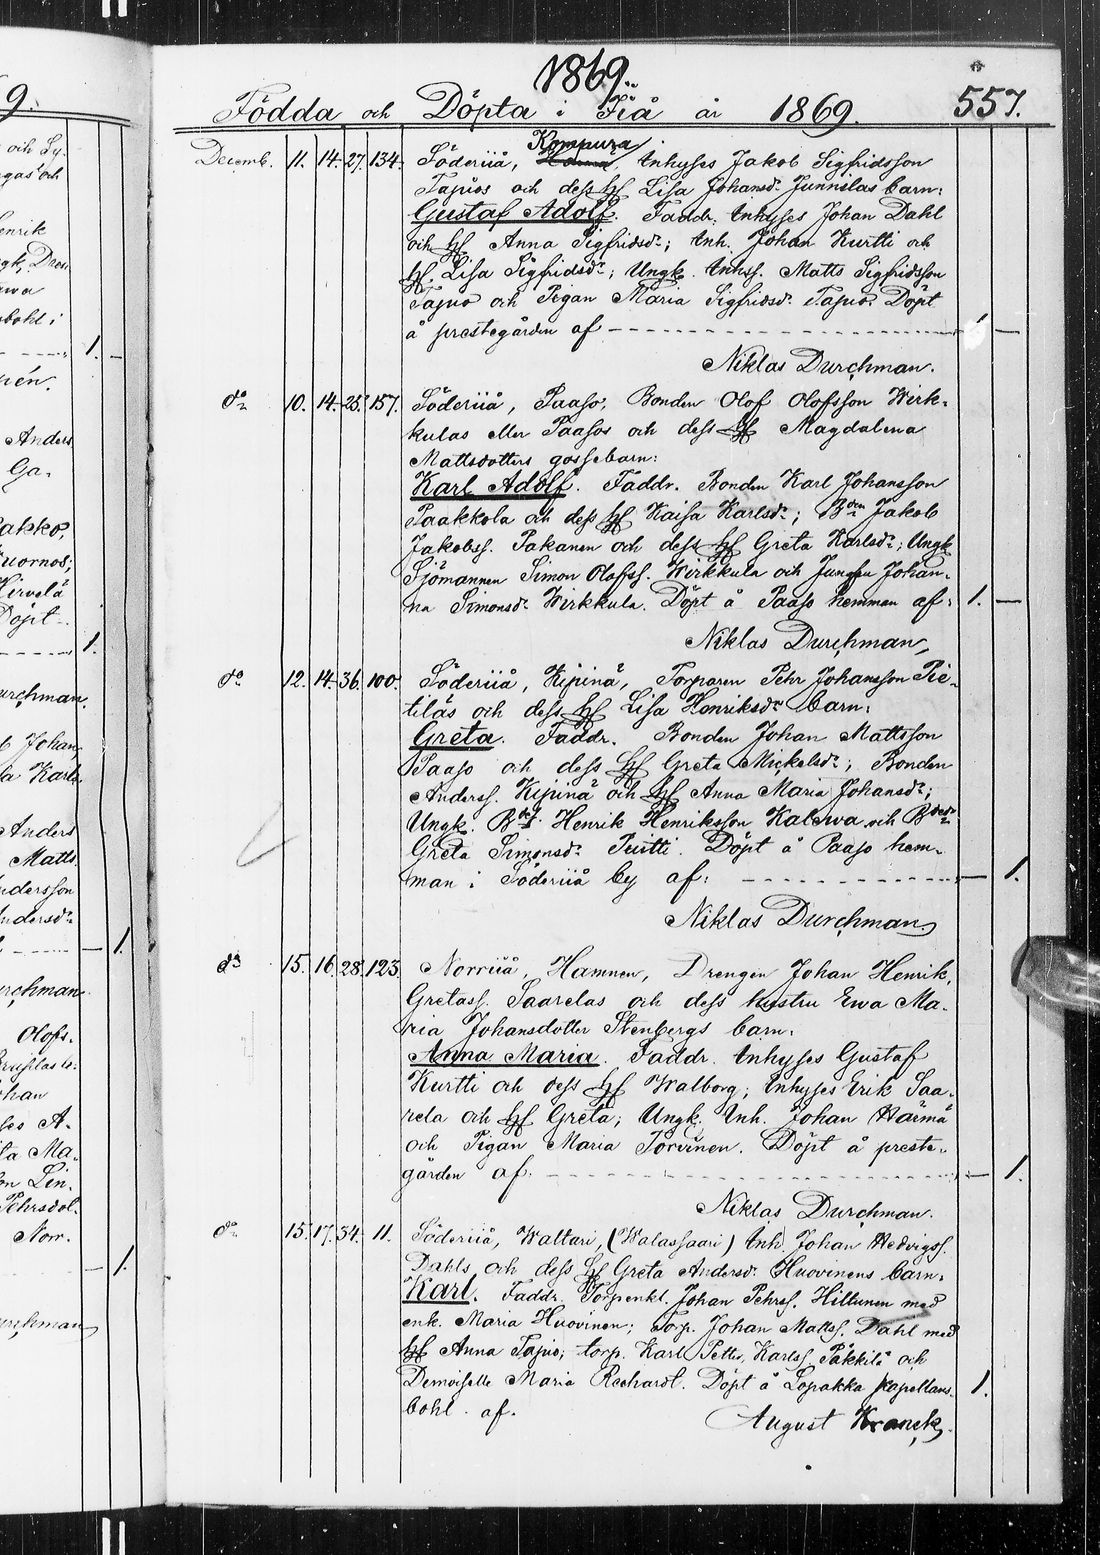 1869.
Födda och Döpta i Iiå år 1869. 557.
Decemb. 11. 14. 27. 134. Söderiiå, Kompura, Inhyses Jakob Sigfridsson
Tapios och dess hf Lisa Johansdr Junnilas barn:
Gustaf Adolf. Faddr. Inhyses Johan Dahl
och hf Anna Sigfridsdr; Inh. Johan Kurtti och
hf. Lisa Sigfridsdr; Ungk. Inhs. Matts Sigfridsson
Tapio och Pigan Maria Sigfridsdr Tapio. Döpt
å prestegården af 1. —
Niklas Durchman.
do 10. 14. 25. 157. Söderiiå, Paaso, Bonden Olof Olofsson Wirk-
kulas eller Paasos och dess hf Magdalena
Mattsdotters gossebarn:
Karl Adolf. Faddr. Bonden Karl Johansson
Paakkola och dess hf Kaisa Karlsdr; Bden Jakob
Jakobss. Pakanen och dess hf Greta Karlsdr; Ungk
Sjömannen Simon Olofss. Wirkkula och Jungfru Johan-
na Simonsdr Wirkkula. Döpt å Paaso hemman af: 1. —
Niklas Durchman
do 12. 14. 36. 100. Söderiiå, Kipinä, Torparen Pehr Johansson Pie-
tiläs och dess hf Lisa Henriksdr barn:
Greta. Faddr. Bonden Johan Mattsson
Paaso och dess hf Greta Mickelsdr; Bonden
Anderss. Kipinä och hf Anna Maria Johansdr;
Ungk. Henrik Henriksson Kalerwa och
Greta Simonsdr Puitti. Döpt å Paaso hem-
man i Söderiiå by af: — 1.
Niklas Durchman
do 15. 16. 28. 123. Norriiå, Hamnen, Drengen Johan Henrik
Gretass. Saarelas och dess hustru Ewa Ma-
ria Johansdotter Stenbergs barn:
Anna Maria. Faddr. Inhyses Gustaf
Kurtti och dess hf Walborg; Inhyses Erik Saa-
rela och hf Greta; Ungk. Inh. Johan Härmä
och Pigan Maria Torvinen. Döpt å preste-
gården af. — 1.
Niklas Durchman.
do 15. 17. 34. 11. Söderiiå, Waltari, (Walassaari) Inh. Johan Hedvigss.
Dahls och dess hf Greta Andersdr Huovinens barn.
Karl. Faddr. Torpenkl. Johan Pehrss. Hiltunen med
enk. Maria Huovinen; Torp. Johan Mattss. Dahl med
hf Anna Tapio; torp. Karl Petter Karlss. Päkkilä och
Demoiselle Maria Rechardt. Döpt å Lopakka kapellans- 1.
bohl. af.
August Kranck